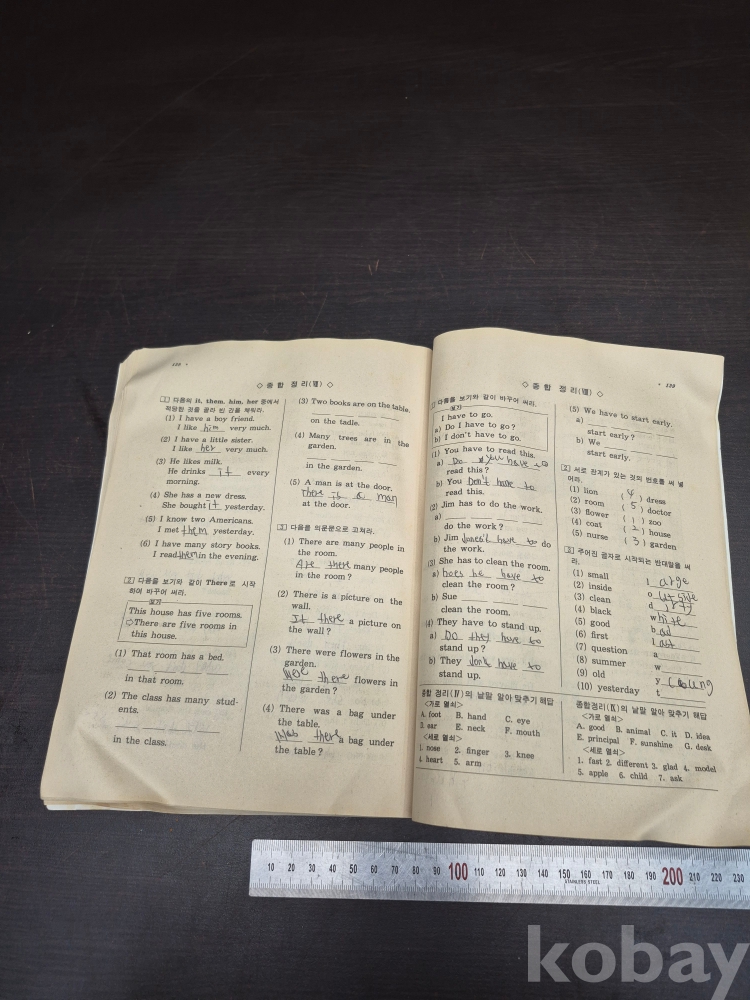 ◇ 종합 정리(Ⅷ) ◇
1 다음의 it, them, him, her 중에서
적당한 것을 골라 빈 칸을 채워라.
(1) I have a boy friend.
I like him very much.
(2) I have a little sister.
I like her very much.
(3) He likes milk.
He drinks it every
morning.
(4) She has a new dress.
She bought it yesterday.
(5) I know two Americans.
I met them yesterday.
(6) I have many story books.
I read them in the evening.
2 다음을 보기와 같이 There로 시작
하여 바꾸어 써라.
보기
This house has five rooms.
⇨There are five rooms in
this house.
(1) That room has a bed.
in that room.
(2) The class has many stud-
ents.
in the class.
(3) Two books are on the table.
on the tadle.
(4) Many trees are in the
garden.
in the garden.
(5) A man is at the door.
There is a man
at the door.
3 다음을 의문문으로 고쳐라.
(1) There are many people in
the room.
Are there many people
in the room?
(2) There is a picture on the
wall.
there a picture on
the wall?
(3) There were flowers in the
garden.
there flowers in
the garden?
(4) There was a bag under
the table.
Was there a bag under
the table?
• 139
◇ 종합 정리(Ⅷ) ◇
1 다음을 보기와 같이 바꾸어 써라.
보기
I have to go.
a) Do I have to go?
b) I don't have to go.
(1) You have to read this.
a) Do you have to
read this?
b) You Don't have to
read this.
(2) Jim has to do the work.
a)
do the work?
b) Jim have to do
the work.
(3) She has to clean the room.
a) he have to
clean the room?
b) Sue
clean the room.
(4) They have to stand up.
a) Do they have to
stand up?
b) They don't have to
stand up.
(5) We have to start early.
a)
start early?
b) We
start early.
2 서로 관계가 있는 것의 번호를 써 넣
어라.
(1) lion (4) dress
(2) room (5) doctor
(3) flower (1) zoo
(4) coat (2) house
(5) nurse (3) garden
3 주어진 글자로 시작되는 반대말을 써
라.
(1) small large
(2) inside outside
(3) clean dirty
(4) black white
(5) good bad
(6) first last
(7) question a
(8) summer w
(9) old y
(10) yesterday t
종합 정리(Ⅳ)의 낱말 알아 맞추기 해답
<가로 열쇠>
A. foot B. hand C. eye
D. ear E. neck F. mouth
<세로 열쇠>
1. nose 2. finger 3. knee
4. heart 5. arm
종합정리(Ⅸ)의 낱말 알아 맞추기 해답
<가로 열쇠>
A. good B. animal C. it D. idea
E. principal F. sunshine G. desk
<세로 열쇠>
1. fast 2. different 3. glad 4. model
5. apple 6. child 7. ask
10 20 30 40 50 60 70 80 90 100 110 120 130 140 150 160 170 180 190 200 210 220 230
STAINLESS STEEL
kobay